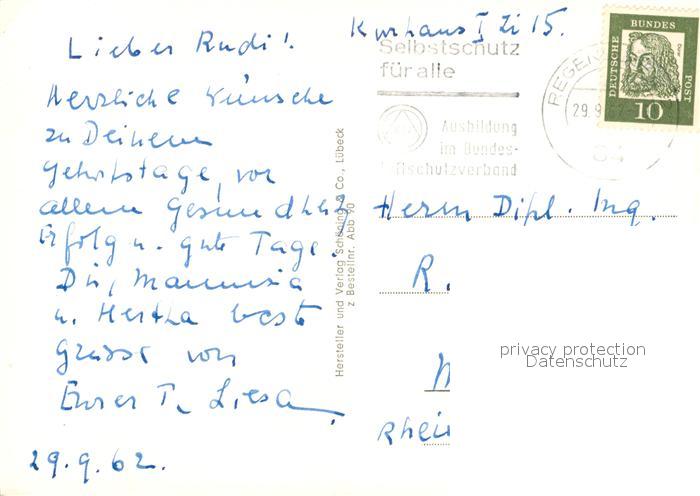 Kurhaus I Zi 15.
Lieber Rudi!
Herzliche Wünsche
zu Deinem
Geburtstage, vor
allem Gesundheit
Erfolg u. gute Tage.
Dir, Mammia
u. Hertha beste
Grüsse von
Eurer T. Liesa
29.9.62.
Hersteller und Verlag Schöning & Co., Lübeck
z Bestellnr. Abb 90
Selbstschutz
für alle
Ausbildung
im Bundes-
luftschutzverband
REGEN
29.9.
DEUTSCHE
BUNDES
POST
10
Herrn Dipl. Ing.
R.
privacy protection
Datenschutz
Rhein